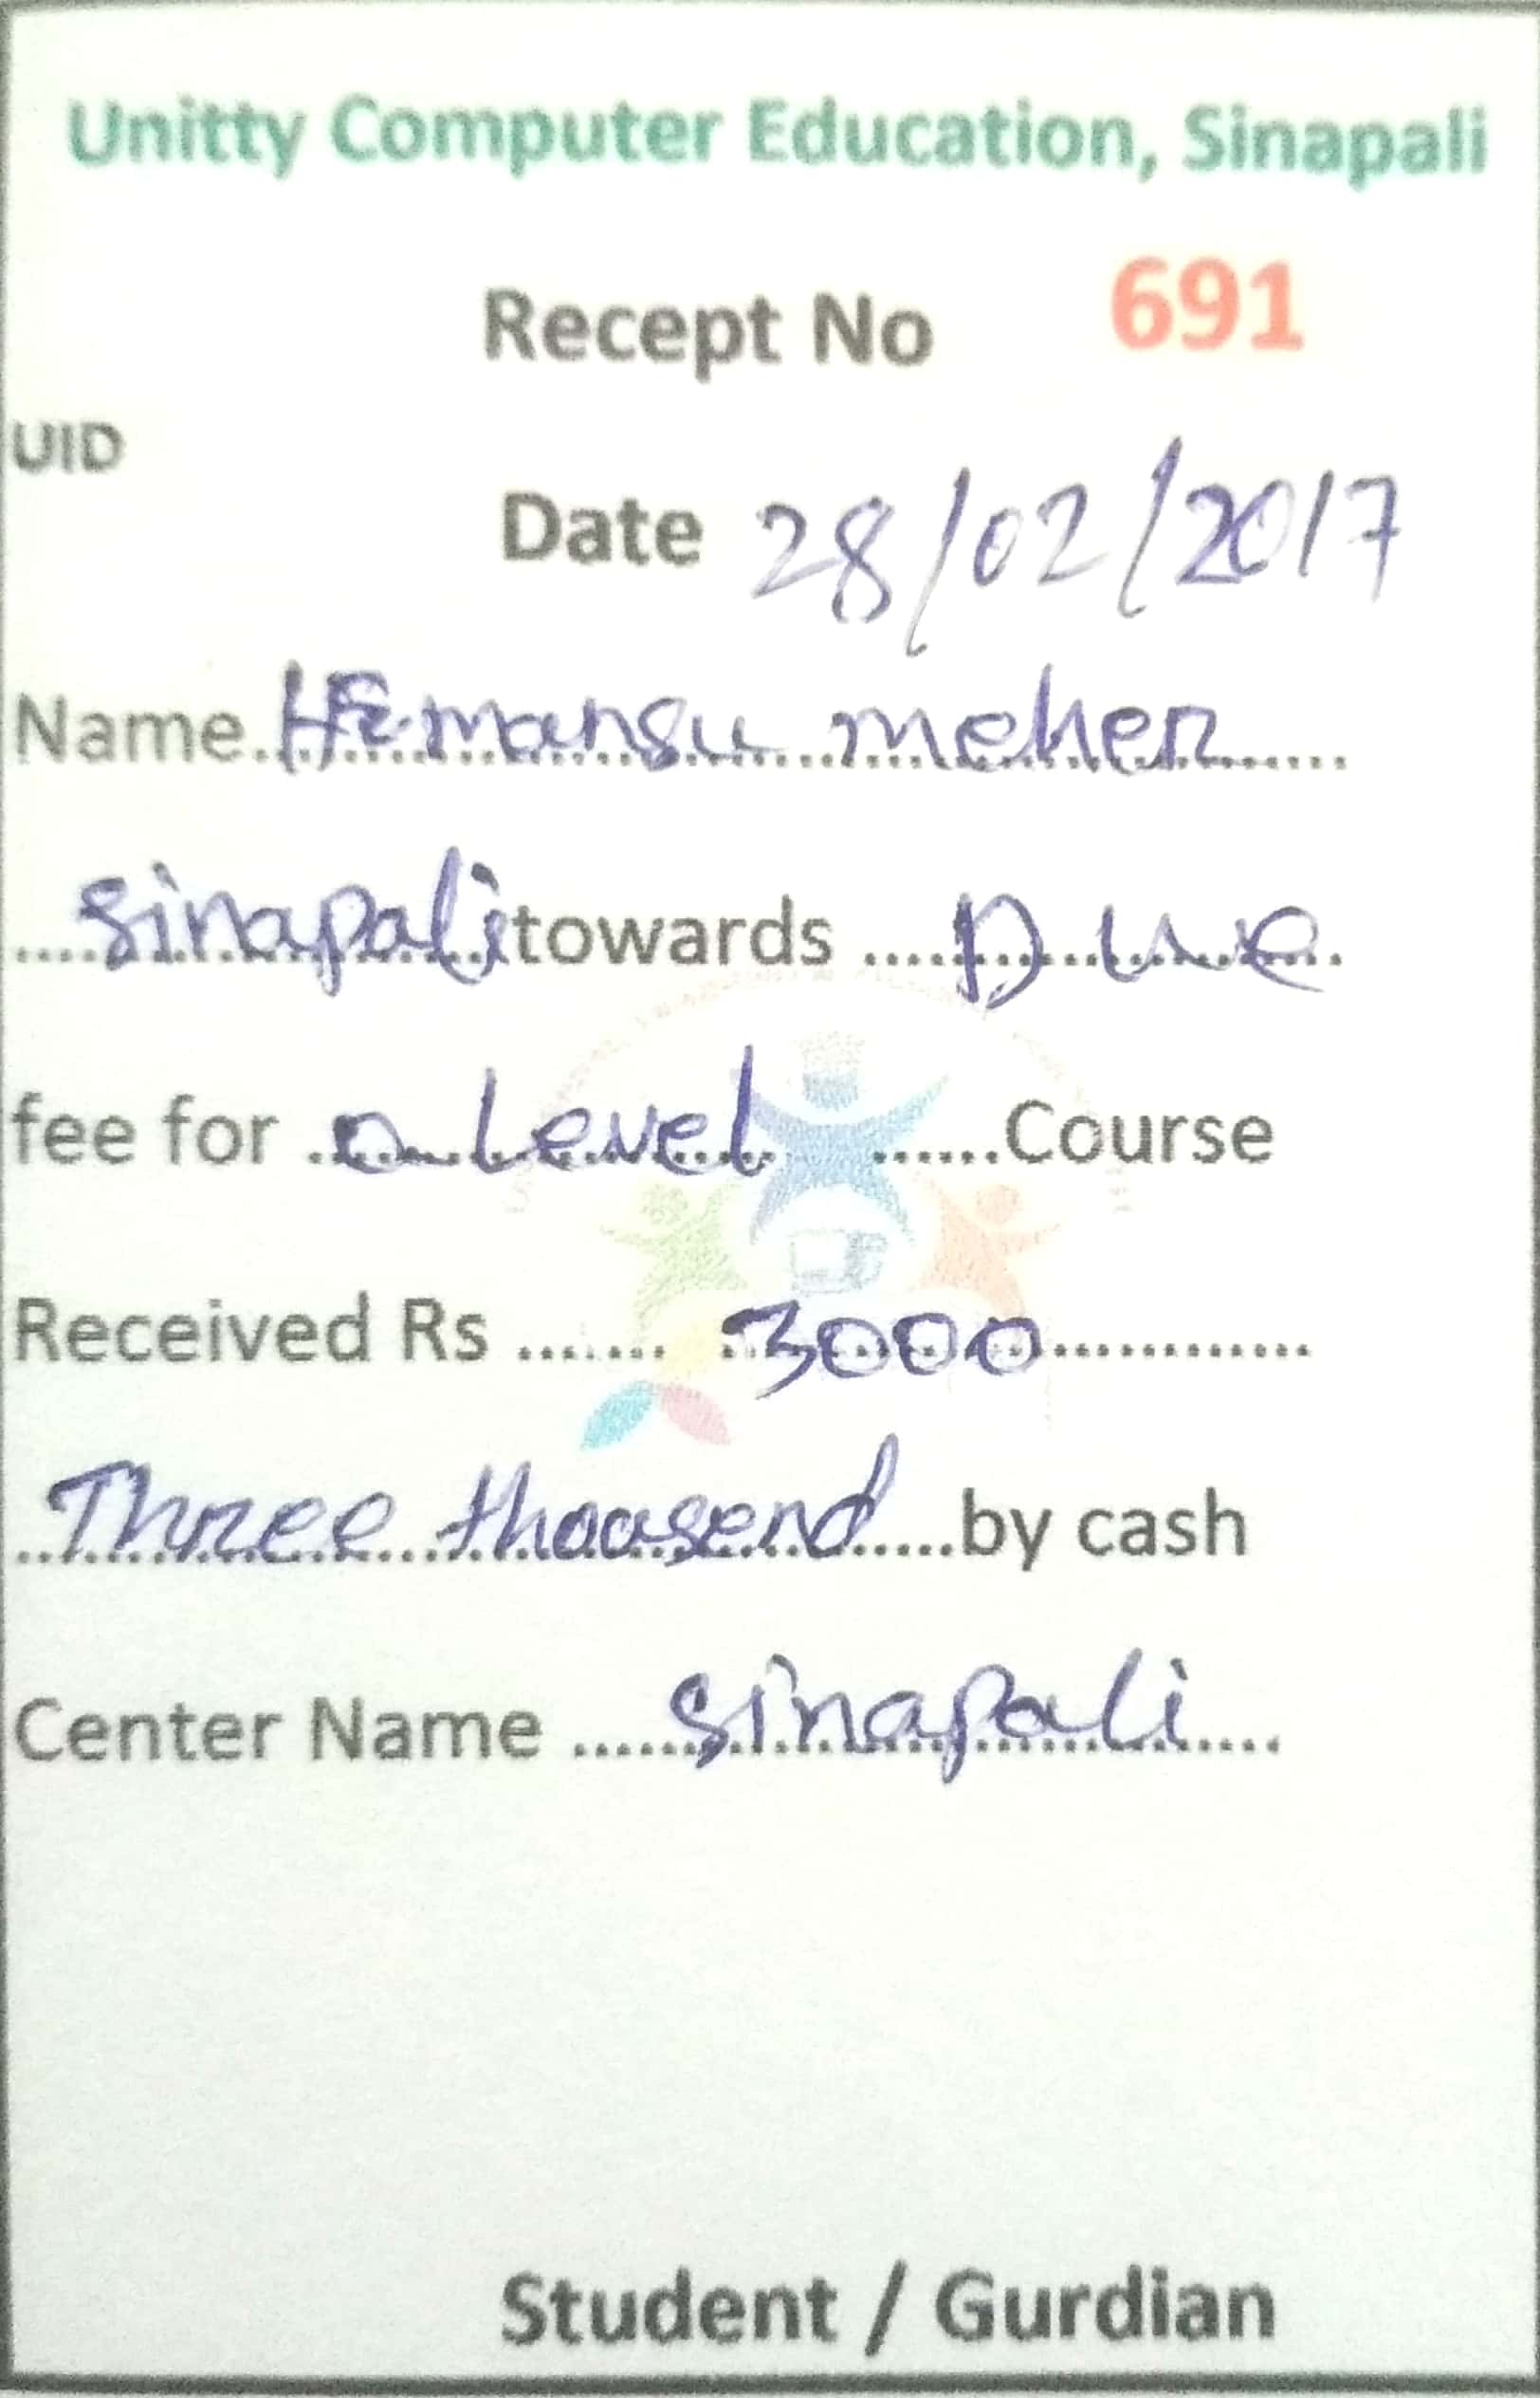 Unitty Computer Education, Sinapali
Recept No 691
UID
Date 28/02/2017
Name Himansu meher
sinapali towards Due
fee for o Level Course
Received Rs 3000
Three thousend by cash
Center Name sinapali
Student / Gurdian